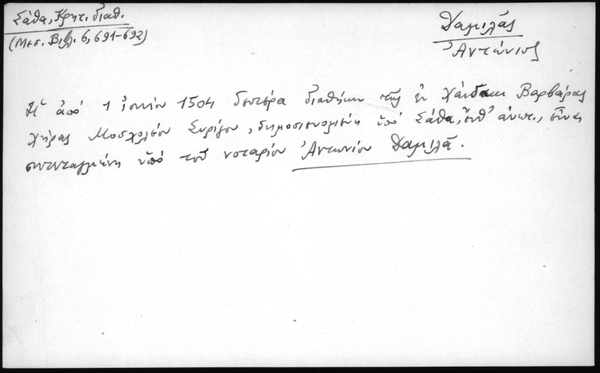 Σάθα, Κρητ. διαθ.
(Μεσ. Βιβλ. 6, 691-692)
Δαμιλᾶς
Ἀντώνιος
Ἡ ἀπό 1 Ἰουνίου 1504 δευτέρα διαθήκη τῆς ἐν Χάνδακι Βαρβάρας
χήρας Μοσχολέου Συρίγου, δημοσιευομένη ὑπό Σάθα, ἔνθ' ἀνωτ., εἶναι
συντεταγμένη ὑπό τοῦ νοταρίου Ἀντωνίου Δαμιλᾶ.